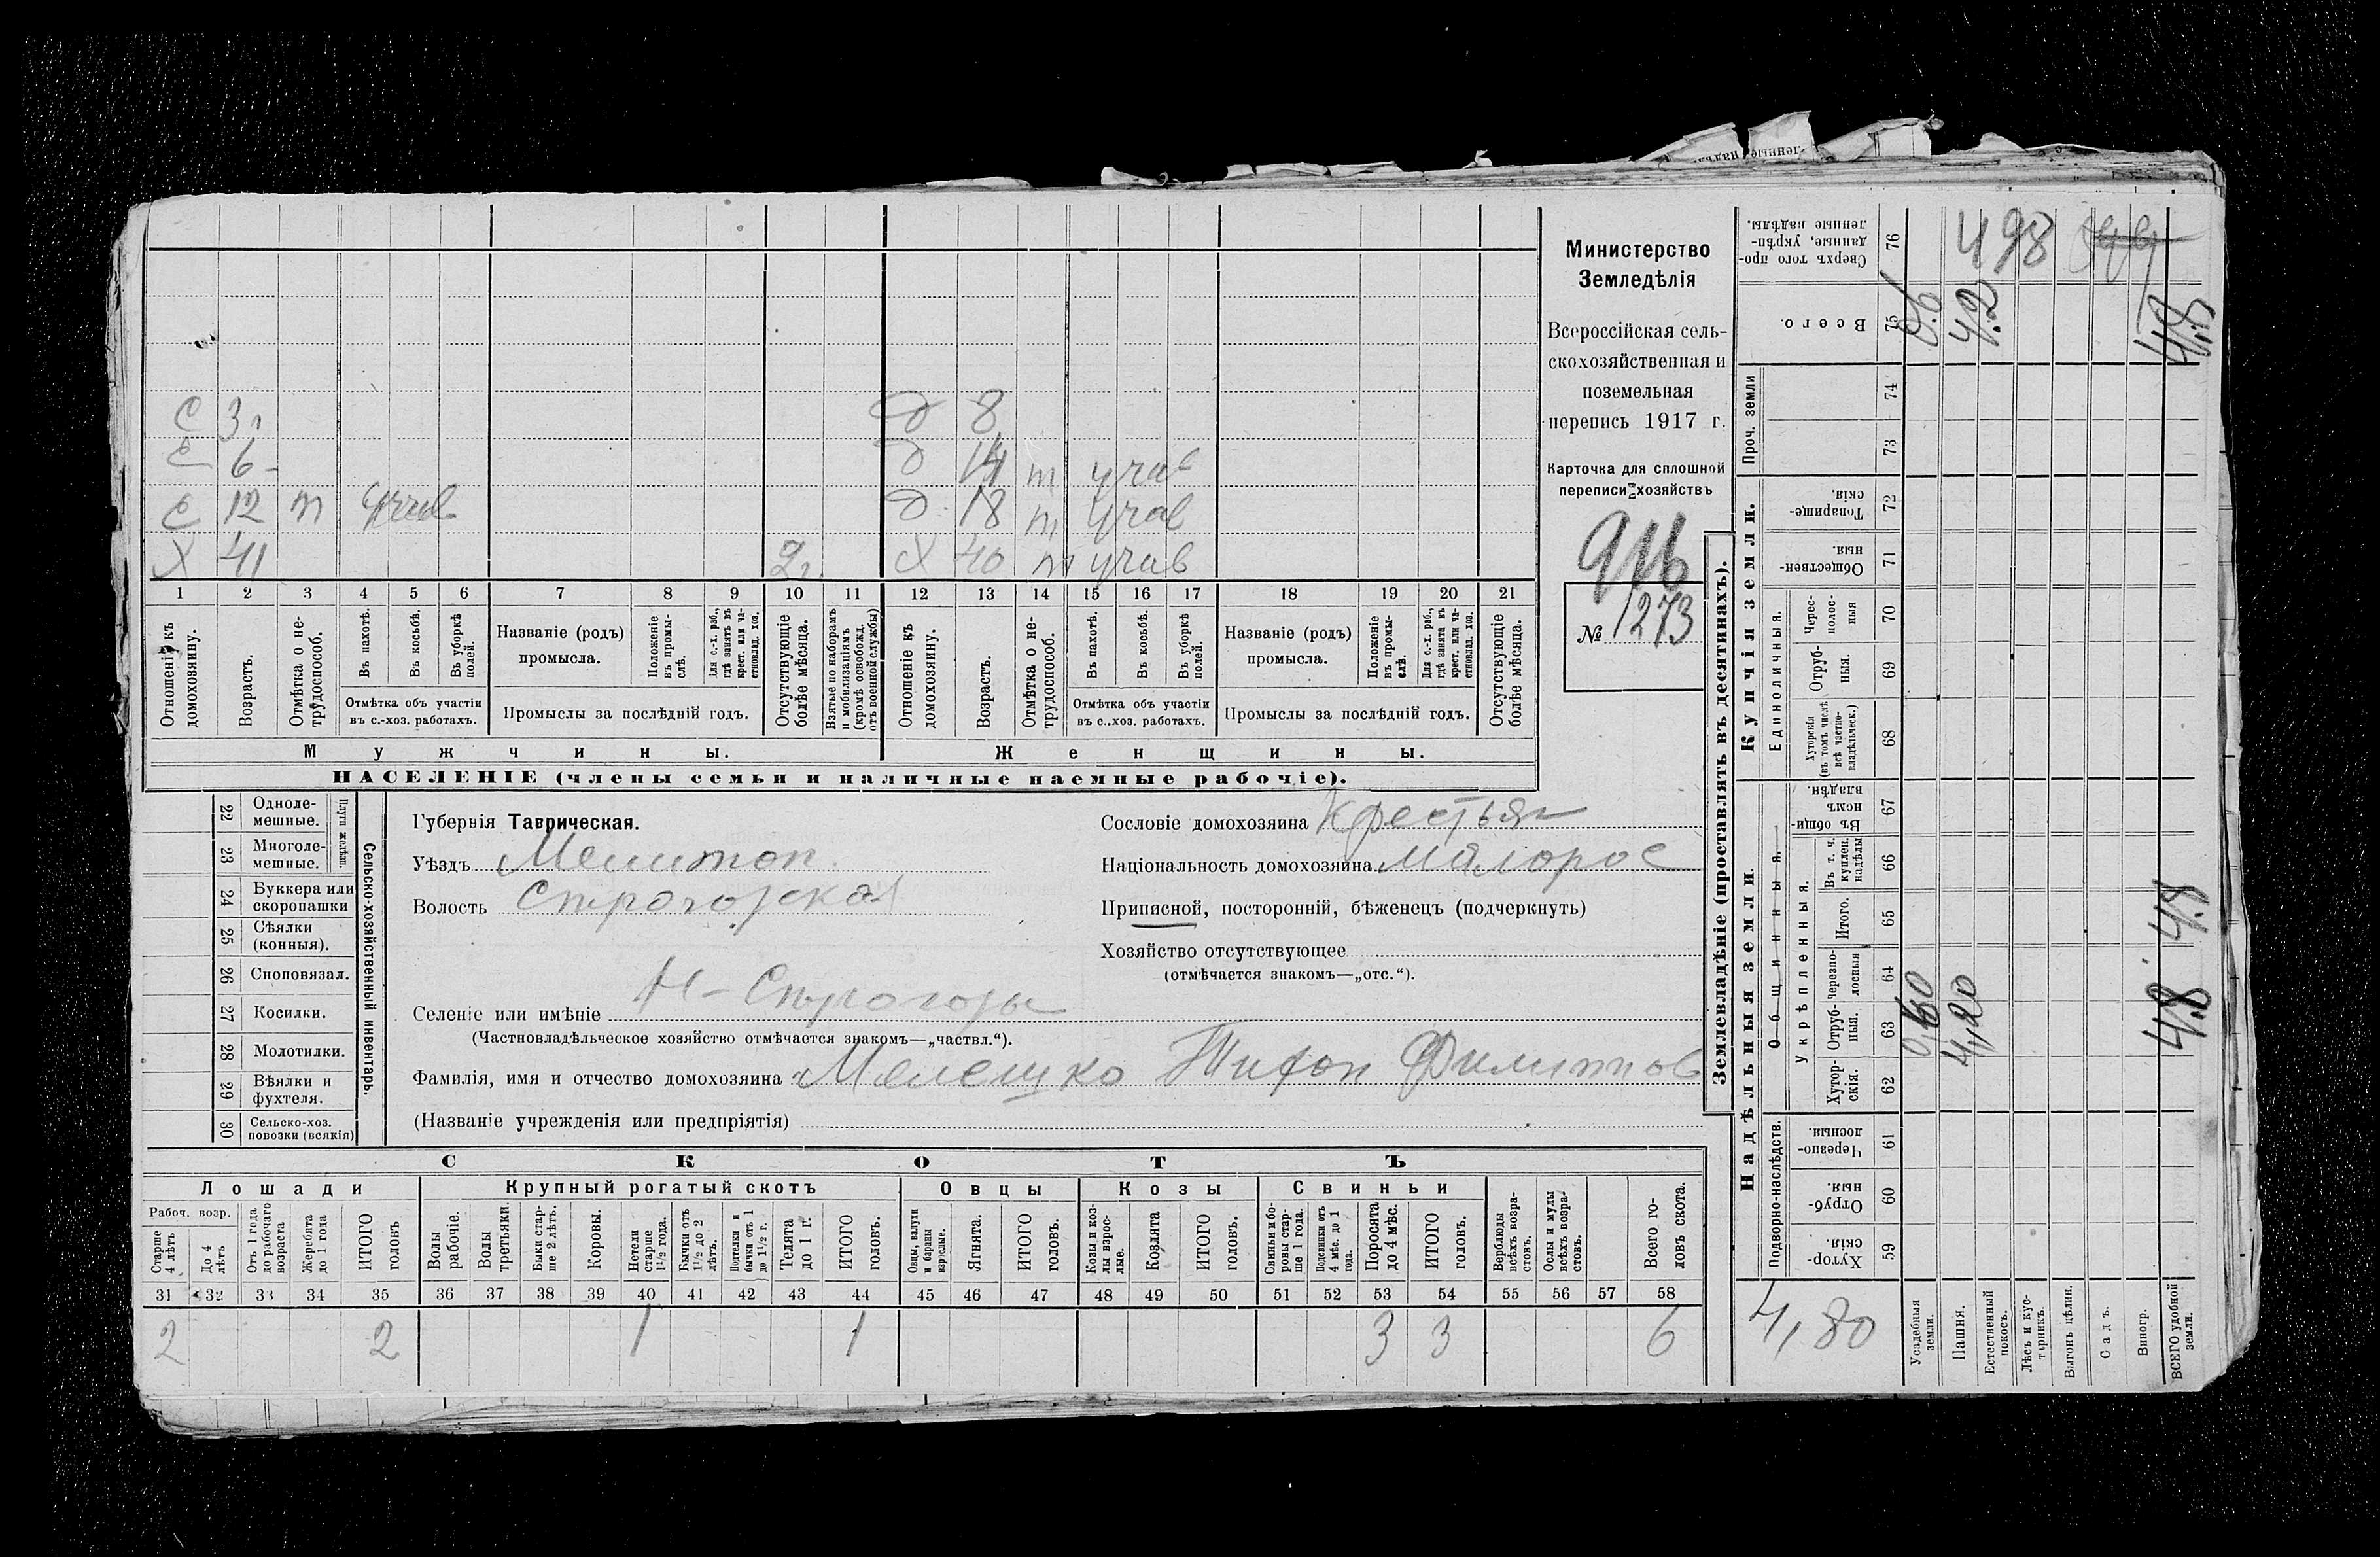 С 3 г Д 8
С 6 - Д 14 т учав
С 12 т учав Д 18 т учав
Х 41 2 г. Х 40 т учав
1 2 3 4 5 6 7 8 9 10 11 12 13 14 15 16 17 18 19 20 21
Отношеніе къ домохозяину.
Возрастъ.
Отмѣтка о нетрудоспособ.
Въ пахотѣ.
Въ косьбѣ.
Въ уборкѣ полей.
Отмѣтка объ участіи
въ с.-хоз. работахъ.
Названіе (родъ)
промысла.
Положеніе въ промыслѣ.
Для с.-х. раб., гдѣ занятъ въ крест. или частновлад. хоз.
Промыслы за послѣдній годъ.
Отсутствующіе болѣе мѣсяца.
Взятые по наборамъ и мобилизаціямъ (кромѣ освобожд. отъ военной службы)
Отношеніе къ домохозяину.
Возрастъ.
Отмѣтка о нетрудоспособ.
Въ пахотѣ.
Въ косьбѣ.
Въ уборкѣ полей.
Отмѣтка объ участіи
въ с.-хоз. работахъ.
Названіе (родъ)
промысла.
Положеніе въ промыслѣ.
Для с.-х. раб., гдѣ занята въ крест. или частновлад. хоз.
Промыслы за послѣдній годъ.
Отсутствующіе болѣе мѣсяца.
Мужчины. Женщины.
НАСЕЛЕНІЕ (члены семьи и наличные наемные рабочіе).
Министерство
Земледѣлія
Всероссійская сель-
скохозяйственная и
поземельная
перепись 1917 г.
Карточка для сплошной
переписи хозяйствъ
916
№ 1273
22 Одноле-
мешные.
23 Многоле-
мешные.
Плуги желѣзн.
24 Буккера или
скоропашки
25 Сѣялки
(конныя).
26 Сноповязал.
27 Косилки.
28 Молотилки.
29 Вѣялки и
фухтеля.
30 Сельско-хоз.
повозки (всякія)
Сельско-хозяйственный инвентарь.
Губернія Таврическая.
Уѣздъ Мелитоп.
Волость Строгорская
Селеніе или имѣніе Н-Строгоры
(Частновладѣльческое хозяйство отмѣчается знакомъ—„частвл.“).
Фамилія, имя и отчество домохозяина Мелешко Тифон Филиппов
(Названіе учрежденія или предпріятія)
Сословіе домохозяина Крестьян
Національность домохозяина малорос
Приписной, посторонній, бѣженецъ (подчеркнуть)
Хозяйство отсутствующее
(отмѣчается знакомъ—„отс.“).
СКОТЪ
Лошади Крупный рогатый скотъ Овцы Козы Свиньи
Рабоч. возр.
Старше 4 лѣтъ
До 4 лѣтъ
Отъ 1 года до рабочаго возраста
Жеребята до 1 года
ИТОГО головъ
Волы рабочіе.
Волы третьяки.
Быки старше 2 лѣтъ.
Коровы.
Нетели старше 1½ года.
Бычки отъ 1½ до 2 лѣтъ.
Подтелки и бычки отъ 1 до 1½ г.
Телята до 1 г.
ИТОГО головъ.
Овцы, валухи и бараны взрослые.
Ягнята.
ИТОГО головъ.
Козы и козлы взрослые.
Козлята
ИТОГО головъ.
Свиньи и боровы старше 1 года.
Подсвинки отъ 4 мѣс. до 1 года.
Поросята до 4 мѣс.
ИТОГО головъ.
Верблюды всѣхъ возрастовъ.
Ослы и мулы всѣхъ возрастовъ.
Всего головъ скота.
31 32 33 34 35 36 37 38 39 40 41 42 43 44 45 46 47 48 49 50 51 52 53 54 55 56 57 58
2 2 1 1 3 3 6
Землевладѣніе (проставлять въ десятинахъ).
Купчія земли.
Надѣльныя земли.
Сверхъ того проданные, укрѣпленные надѣлы. 76 498
Всего. 75 0,6 4.2 4.8
Проч. земли 74 73
Товарищескія. 72
Общественныя. 71
Единоличныя.
Чересполосныя 70
Отрубныя. 69
Хуторскія (въ томъ числѣ всѣ частновладѣльческ.) 68
Общинныя.
Въ общинномъ владѣн. 67
Укрѣпленныя.
Въ т. ч. куплен. надѣлы 66
Итого. 65 4.8
Черезполосныя 64
Отрубныя. 63 0,60 4,20 4.8
Хуторскія. 62
Подворно-наслѣдств.
Черезполосныя 61
Отрубныя. 60
Хуторскія. 59
4,80
Усадебныя земли.
Пашня.
Естественный покосъ.
Лѣсъ и кустарникъ.
Выгонъ цѣлин.
Садъ.
Виногр.
ВСЕГО удобной земли.